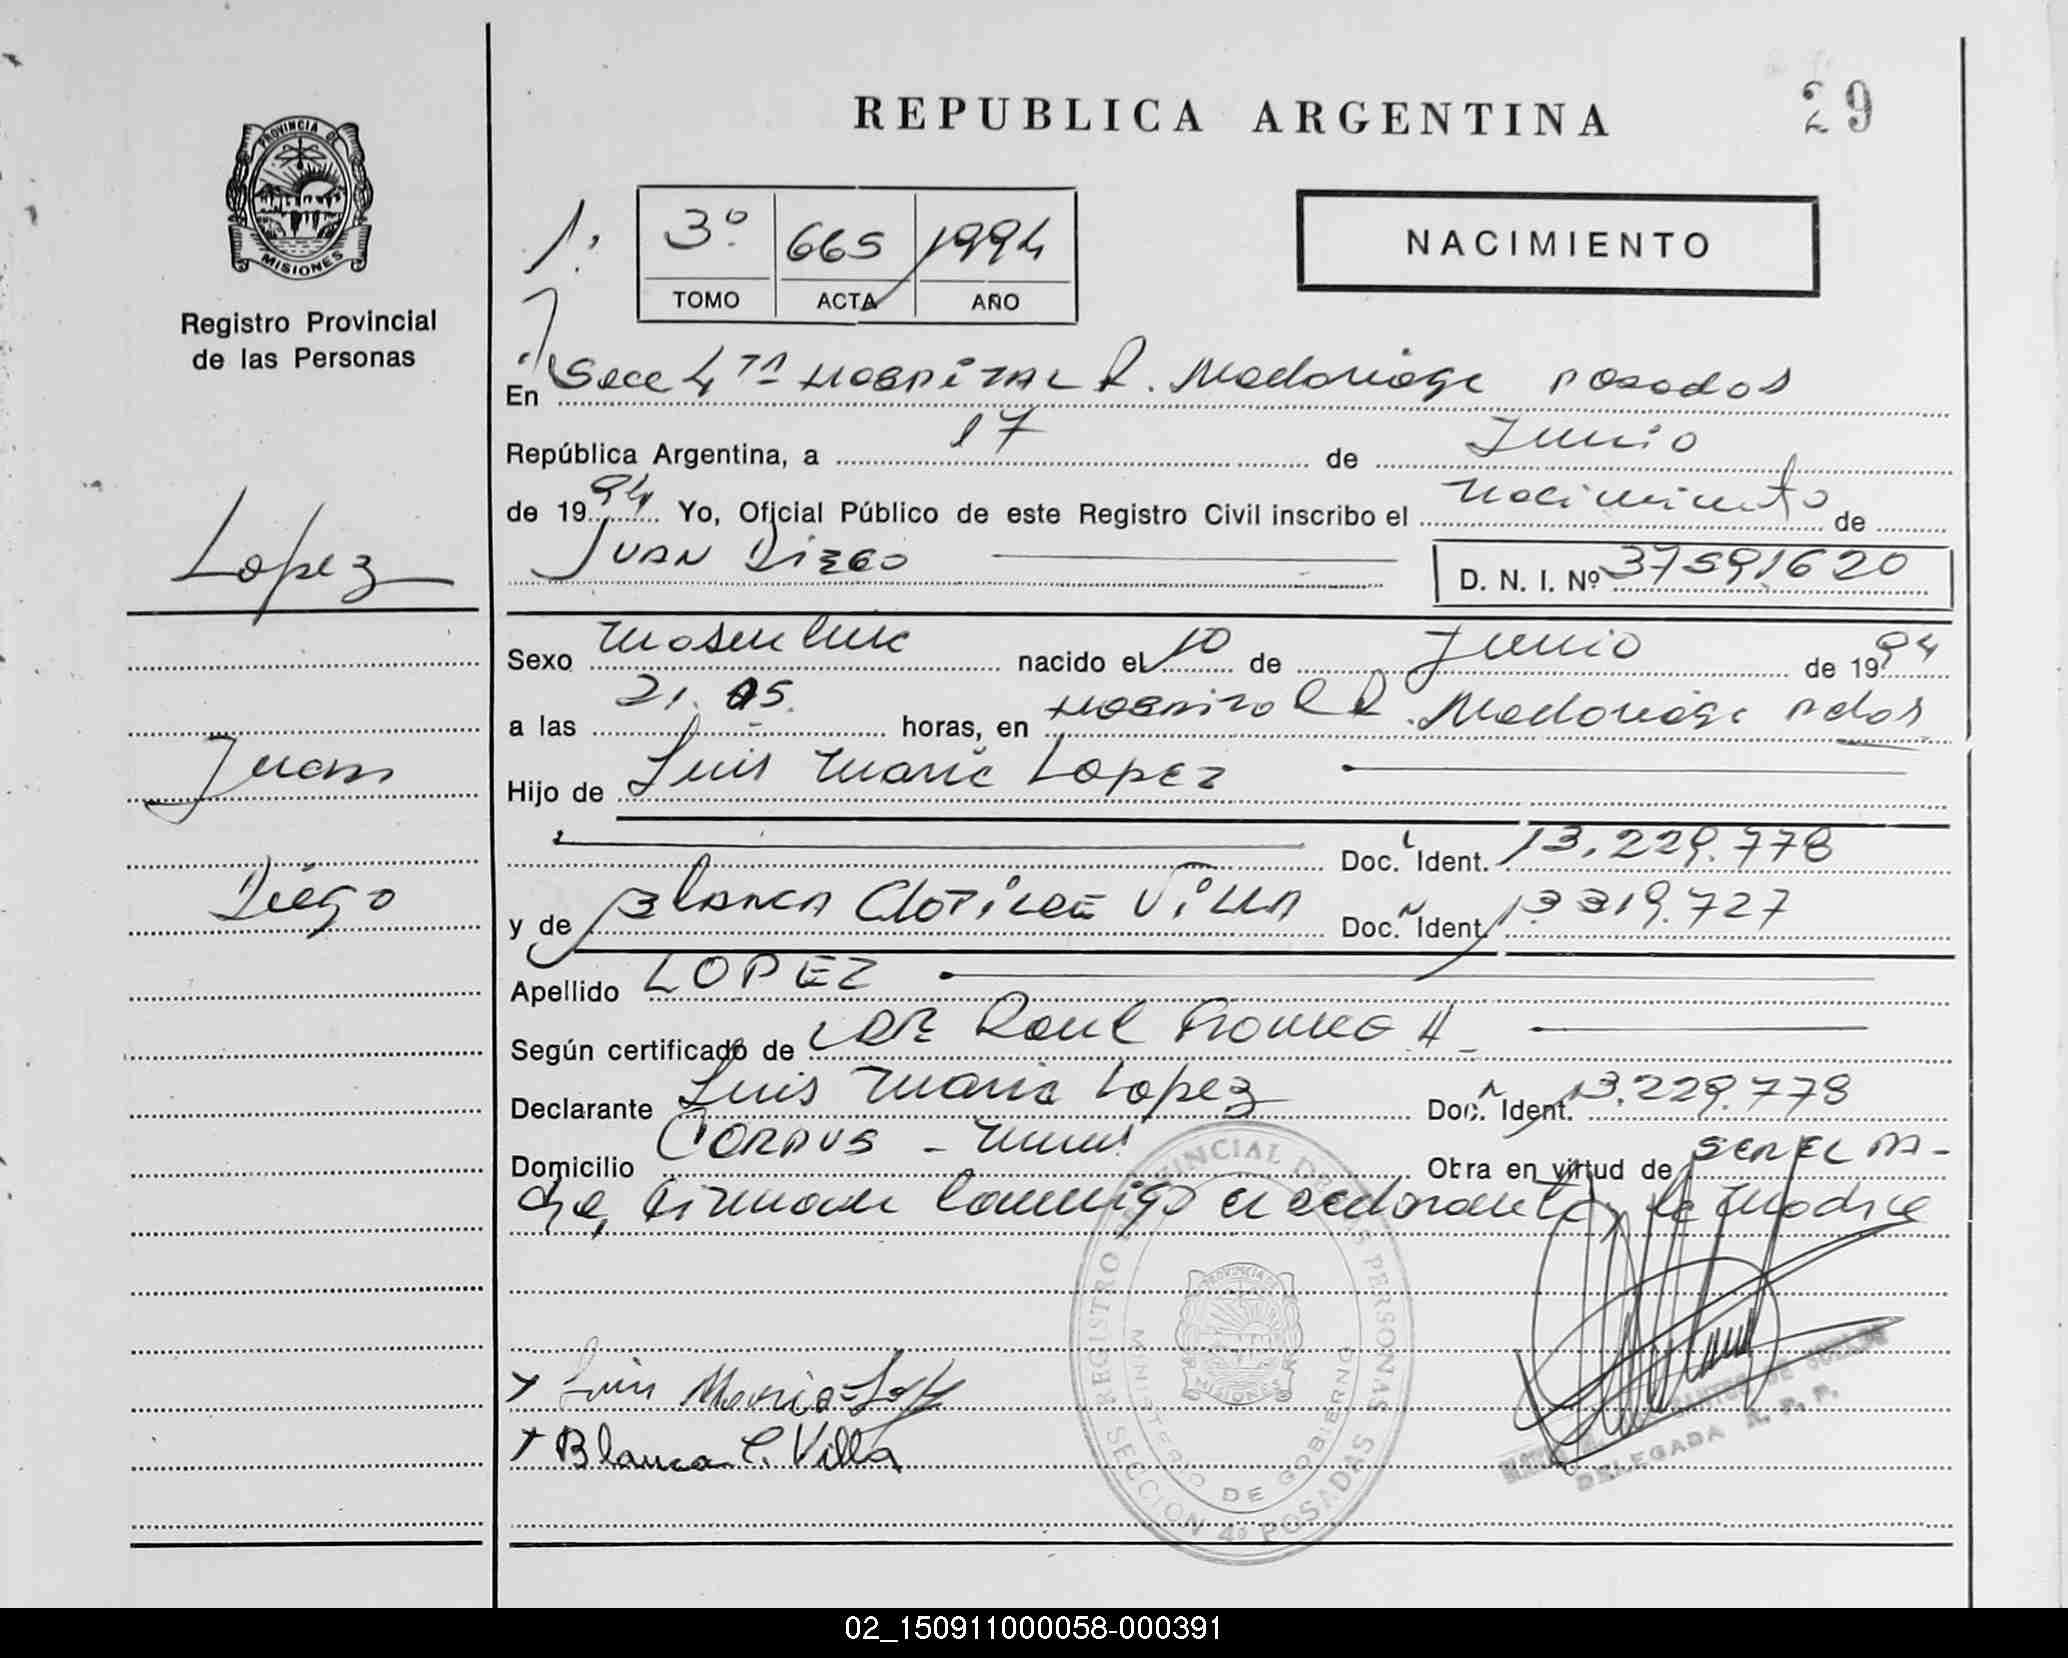 REPUBLICA ARGENTINA
29
PROVINCIA DE
MISIONES
Registro Provincial
de las Personas
3º 665 1994
TOMO ACTA AÑO
NACIMIENTO
En Secc 4ta Hospital R. Madariaga Posadas
República Argentina, a 17 de Junio
de 1994 Yo, Oficial Público de este Registro Civil inscribo el nacimiento de
JUAN DIEGO D. N. I. Nº 37591620
Lopez
Sexo masculino nacido el 10 de Junio de 1994
a las 21.05. horas, en Hospital R. Madariaga Pdas
Juan
Hijo de Luis Maria Lopez
Doc. Ident. 13.229.778
Diego
y de Blanca Clotilde Villa Doc. Ident. 13.319.727
Apellido LOPEZ
Según certificado de DR Raul
Declarante Luis Maria Lopez Doc. Ident. 13.229.778
Domicilio CORPUS - Mnes Obra en virtud de SER EL PA-
dre, firman conmigo el declarante y la madre
Luis Maria Lopez
Blanca C. Villa
REGISTRO PROVINCIAL DE LAS PERSONAS
MINISTERIO DE GOBIERNO
PROVINCIA DE
MISIONES
SECCION 4ª POSADAS
DELEGADA R. P. P.
02_150911000058-000391